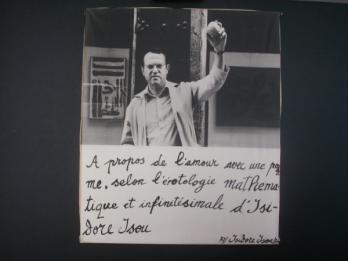 A propos de l'amour avec une pom
me, selon l'érotologie mathéma-
tique et infinitésimale d'Isi-
dore Isou
Isidore Isou